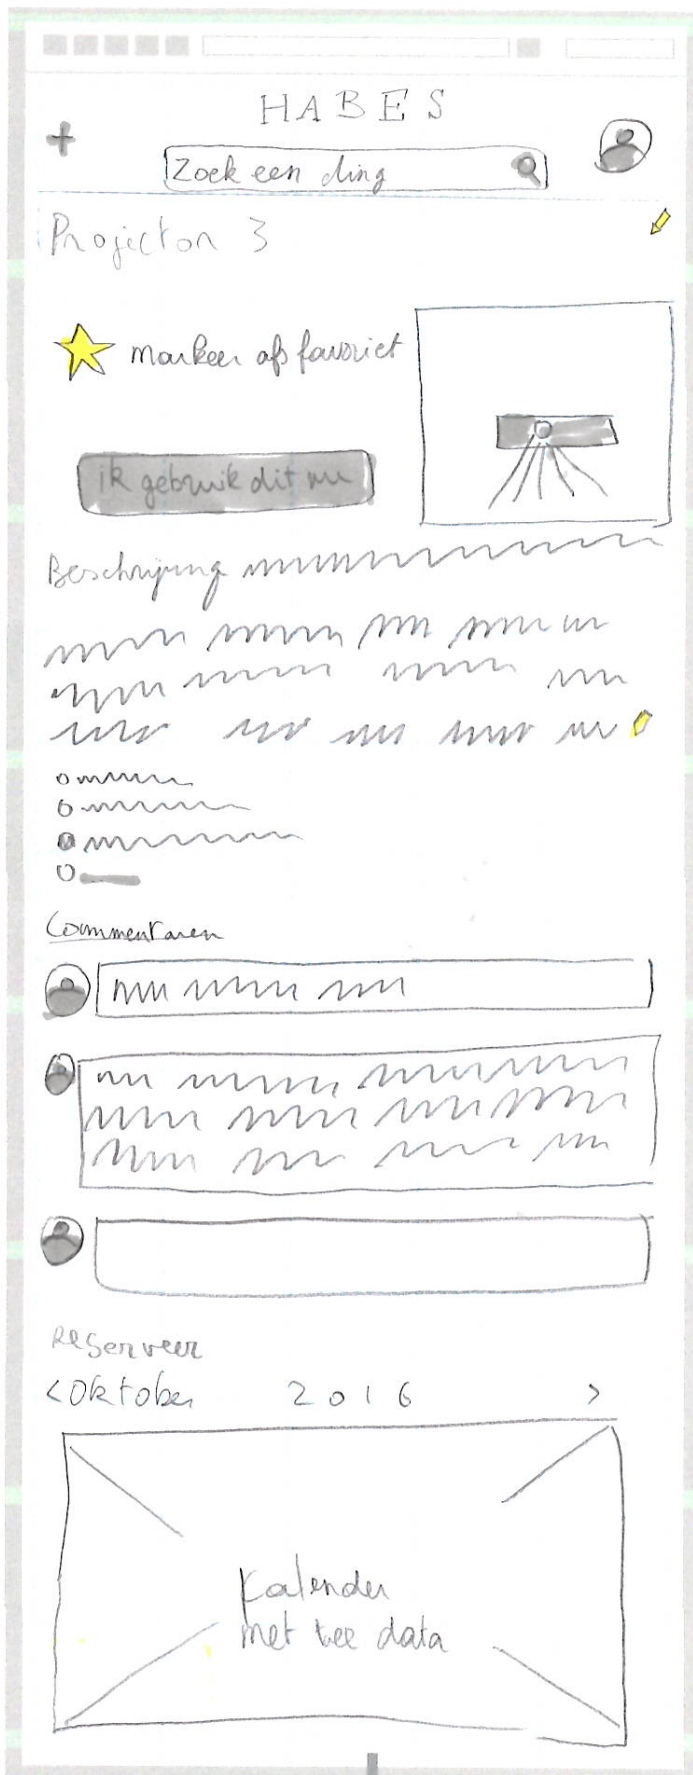 HABES
Zoek een ding
Projector 3
markeer als favoriet
ik gebruik dit nu
Beschrijving
Commentaren
Reserveer
< Oktober 2016 >
Kalender
met data